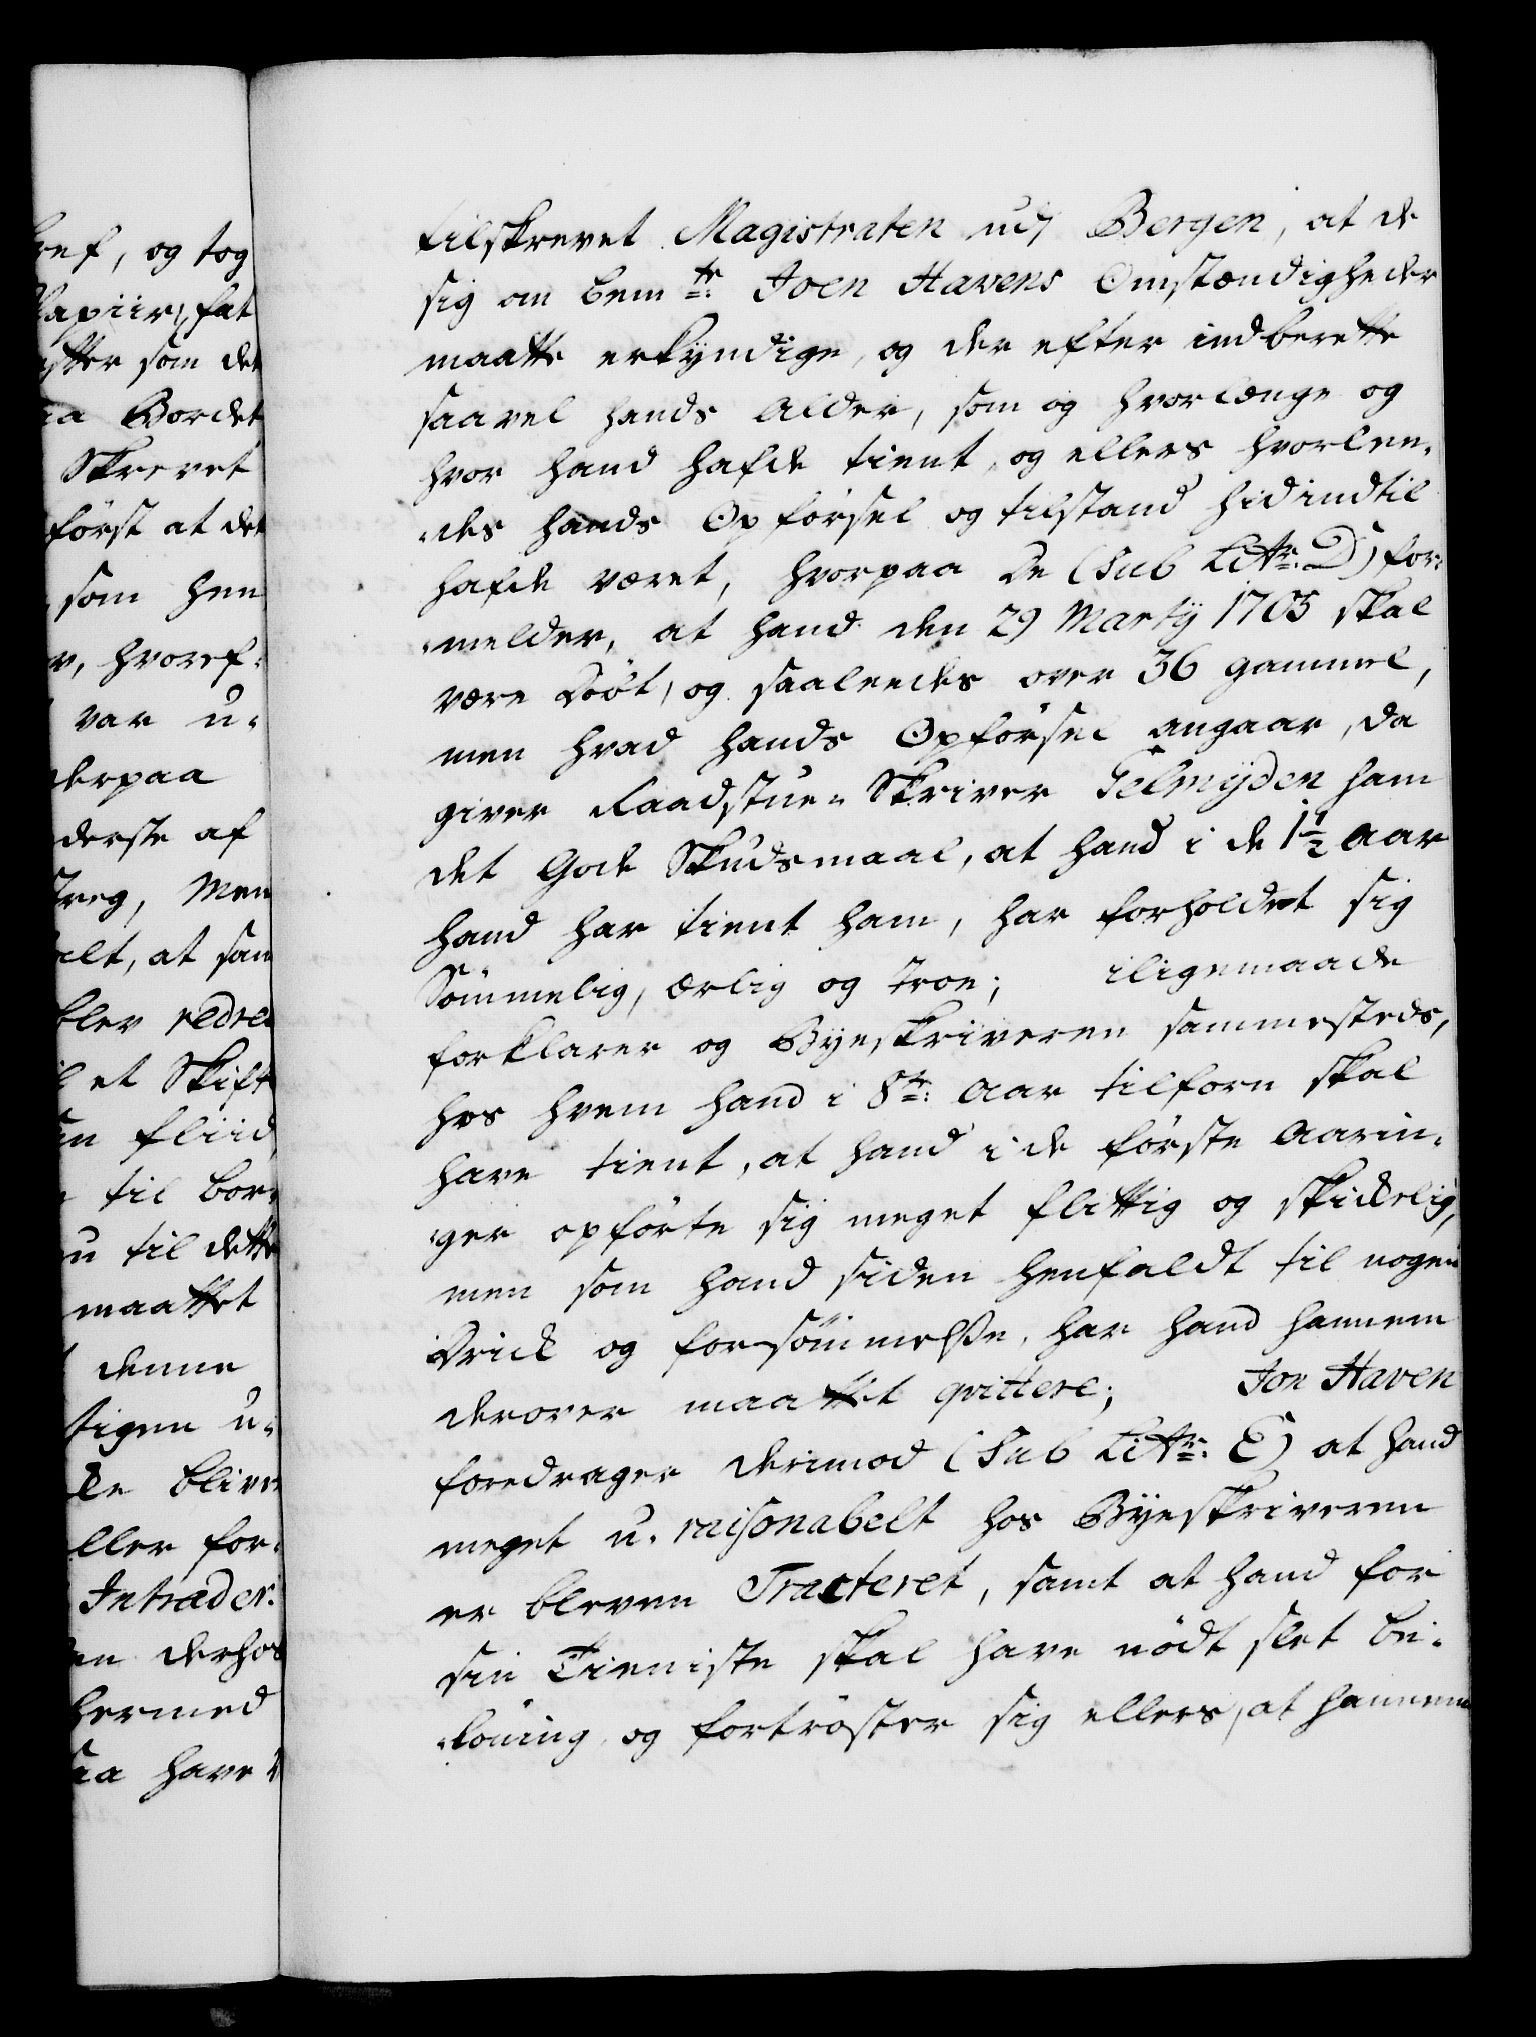 ref, og tog
Papiir, fat
efter som det
aa Bordet
Skrevet
först at det
som hen
r, hvoref-
var u-
derpaa
derste af
Streg, Men
elt, at saa
blev redre
l et Skift
en fliid
til bor-
u til dette
maattet
denne
tigen u-
le blive
ller for-
Intrader.
en derhos
hermed
aa have
tilskrevet Magistraten udj Bergen, at de
sig om bem.te Joen Havens Omstændigheder
maatte erkyndige, og der efter indberette
saavel hands Alder, som og hvorlænge og
hvor hand hafde tient, og ellers hvorlen-
-des hands Opförsel og tilstand hidindtil
hafde været, hvorpaa De (Sub Littr. D) for-
-melder, at hand den 29 Martij 1705 skal
være Döbt, og saaleedes over 36 gammel,
men hvad hands Opförsel angaar, da
giver Raadstue-Skriver Gelmyden ham
det Gode Skudsmaal, at hand i de 1½ Aar
hand har tient ham, har forholdet sig
Sömmelig, ærlig og troe; iligemaade
forklarer og Byeskriveren sammesteds,
hos hvem hand i 8te: Aar tilforn skal
have tient, at hand i de förste Aarin-
-ger opförte sig meget flittig og skickelig,
men som hand siden henfaldt til nogen
Drick og forsömmelsse, har hand hannem
derover maattet qvittere; Jon Haven
foredrager derimod (Sub Littr: E) at hand
meget u-raisonabelt hos Byeskriveren
er bleven Tracteret, samt at hand for
sin Tieniste skal have nödt slet be-
-löning, og fortröster sig ellers, at hannem